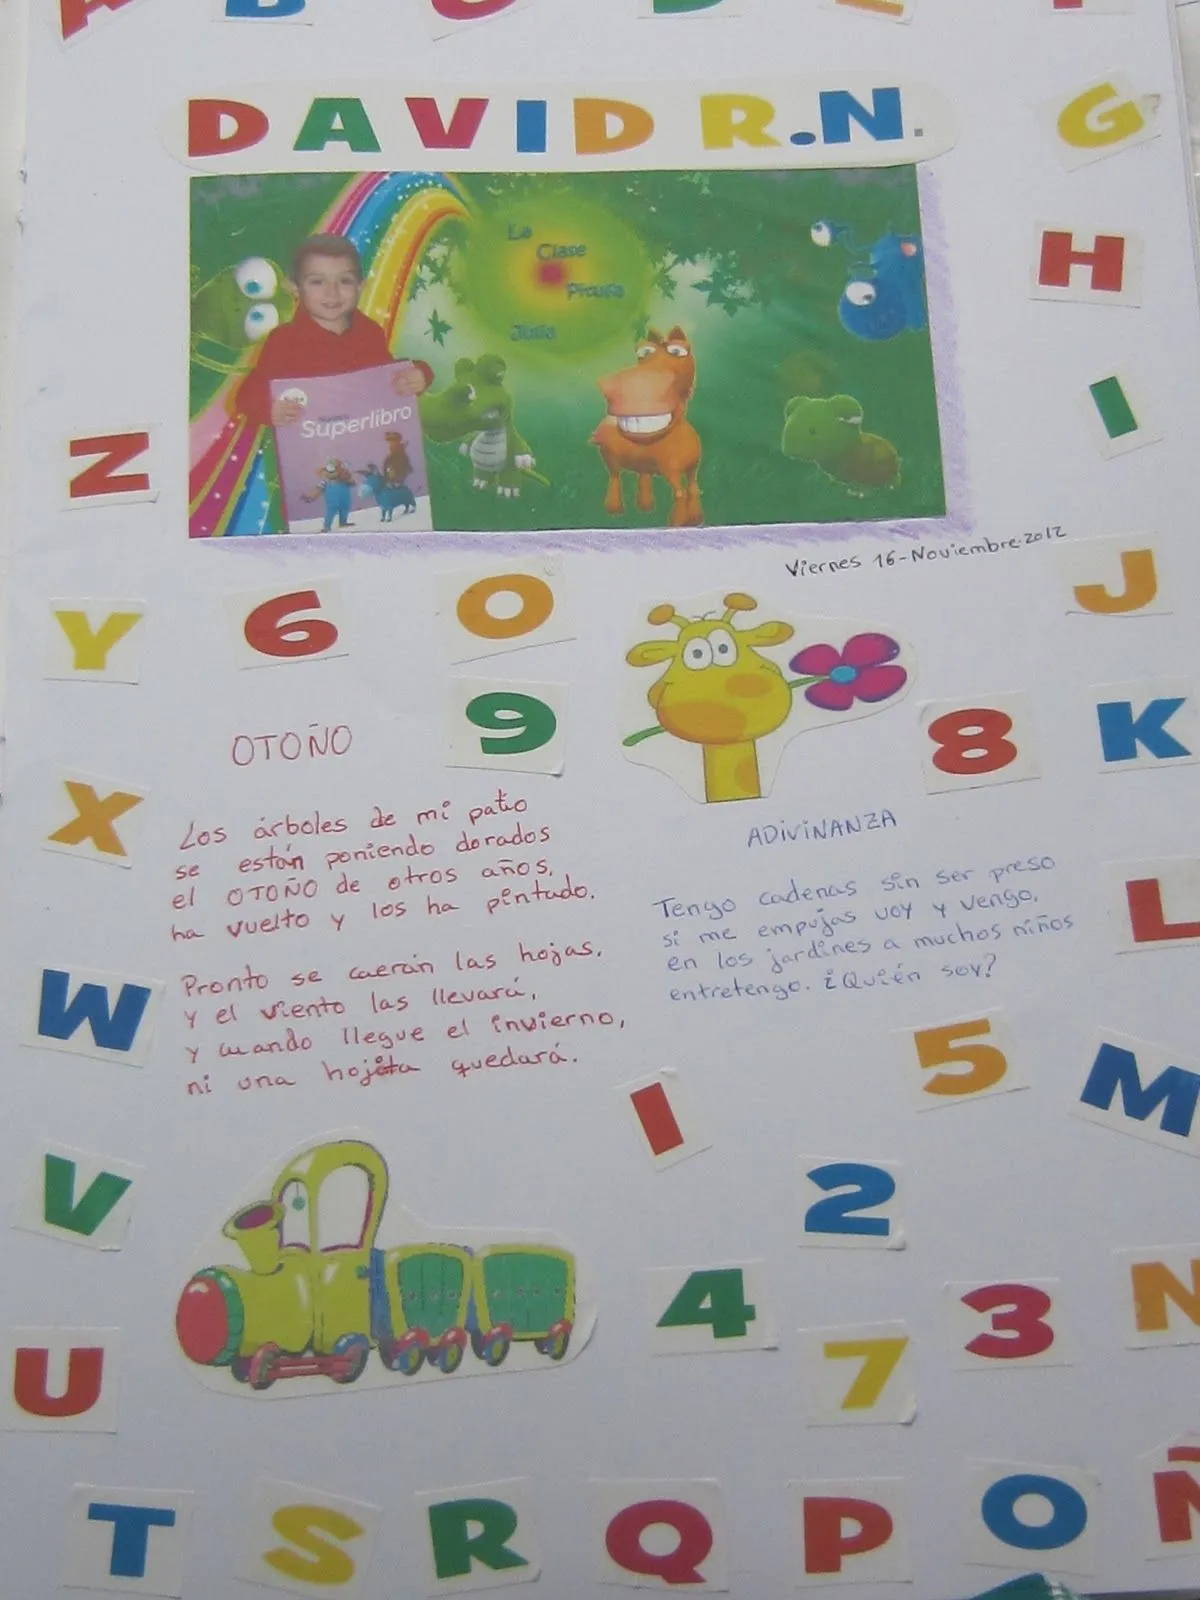 A B C D E F
DAVID R.N.
G
H
I
La
Clase
Pirueta
Julia
Superlibro
Viernes 16-Noviembre-2012
Z
J
Y
6
O
9
8
K
X
OTOÑO
Los árboles de mi patio
se están poniendo dorados
el OTOÑO de otros años,
ha vuelto y los ha pintado.
Pronto se caerán las hojas,
y el viento las llevará,
y cuando llegue el invierno,
ni una hojita quedará.
ADIVINANZA
Tengo cadenas sin ser preso
si me empujas voy y vengo,
en los jardines a muchos niños
entretengo. ¿Quién soy?
L
W
5
M
1
V
2
4
3
N
7
U
T S R Q P O Ñ